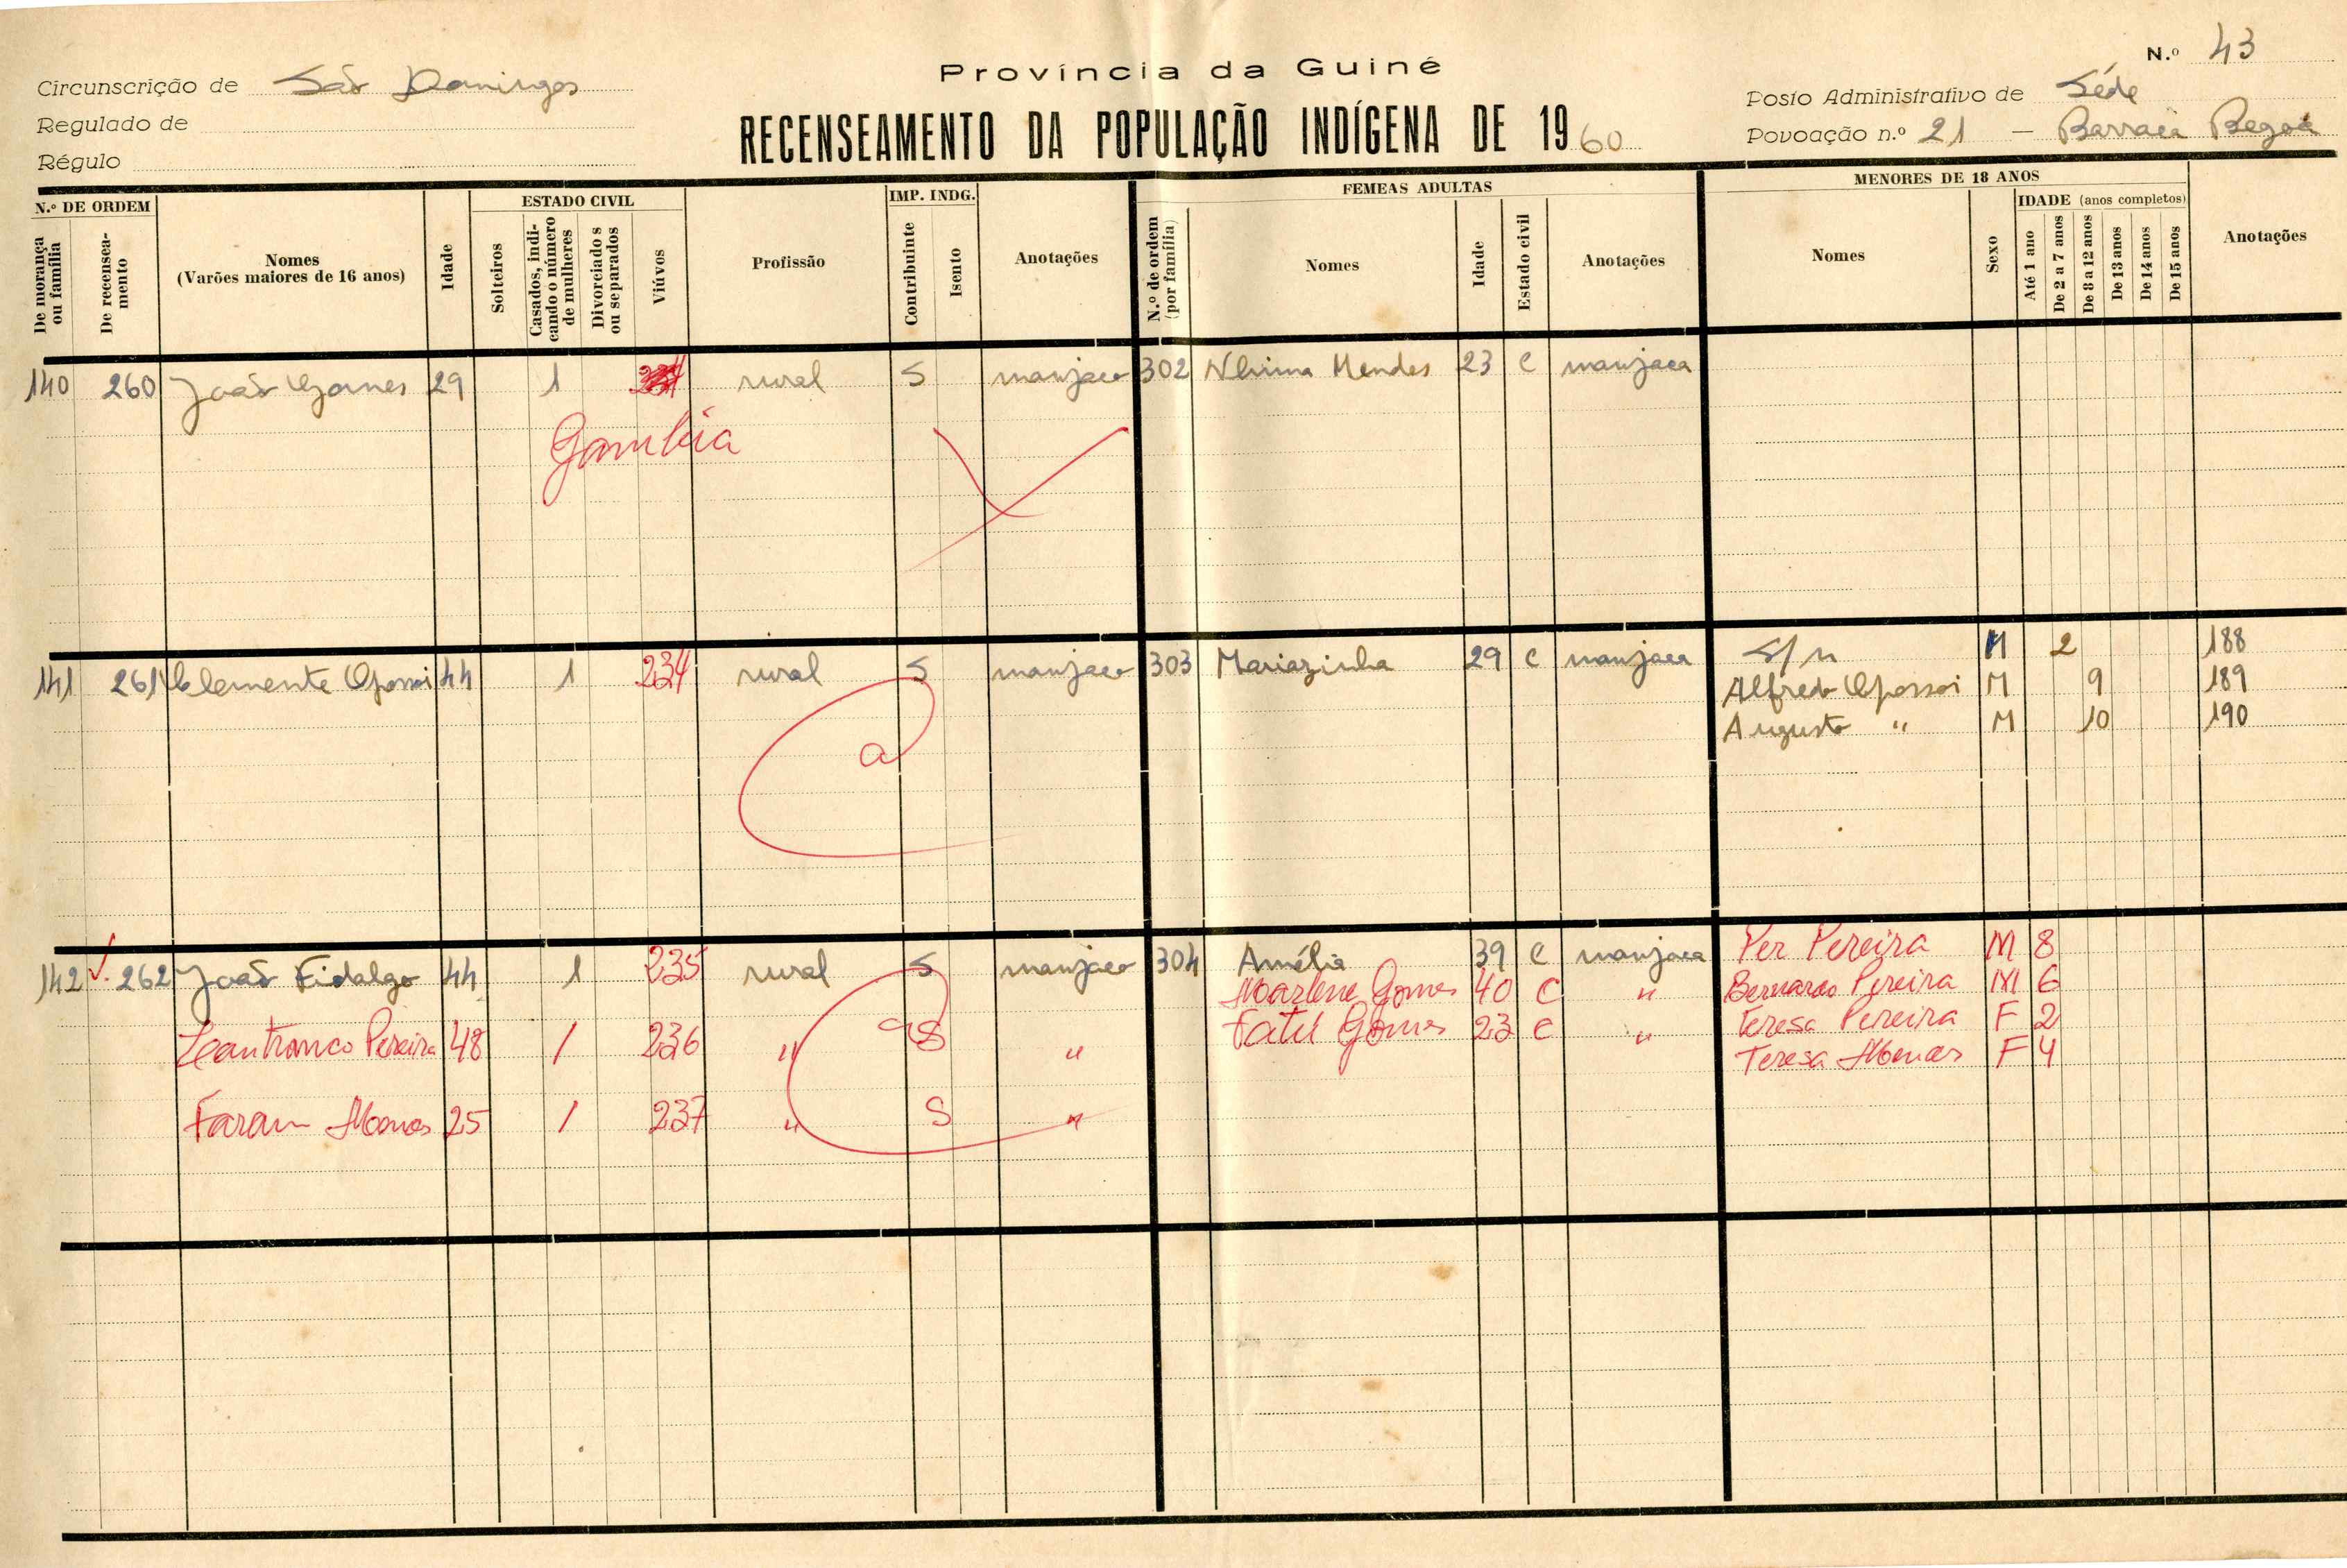 N.º 43
Província da Guiné
Circunscrição de São Domingos
Posto Administrativo de Séde
Regulado de
RECENSEAMENTO DA POPULAÇÃO INDÍGENA DE 1960
Povoação n.º 21 — Barraca
Régulo
N.º DE ORDEM
De morança ou família
De recenseamento
Nomes
(Varões maiores de 16 anos)
Idade
ESTADO CIVIL
Solteiros
Casados, indicando o número de mulheres
Divorciados ou separados
Viúvos
Profissão
IMP. INDG.
Contribuinte
Isento
Anotações
FEMEAS ADULTAS
N.º de ordem (por família)
Nomes
Idade
Estado civil
Anotações
MENORES DE 18 ANOS
Nomes
Sexo
IDADE (anos completos)
Até 1 ano
De 2 a 7 anos
De 8 a 12 anos
De 13 anos
De 14 anos
De 15 anos
Anotações
140 260 João Gomes 29 1 rural S manjaco 302 Mendes 23 C manjaca
Gambia
141 261 Clemente 44 1 234 rural S manjaco 303 Mariazinha 29 C manjaca S/n M 2 188
Alfredo M 9 189
a
Augusto " M 10 190
142 262 João Fidalgo 44 1 235 rural S manjaco 304 Amélia 39 C manjaca Per Pereira M 8
Marlene Gomes 40 C " Bernardo Pereira M 6
Pereira 48 1 236 " S " Fatú Gomes 23 C " Teresa Pereira F 2
Teresa F 4
25 1 237 " S "